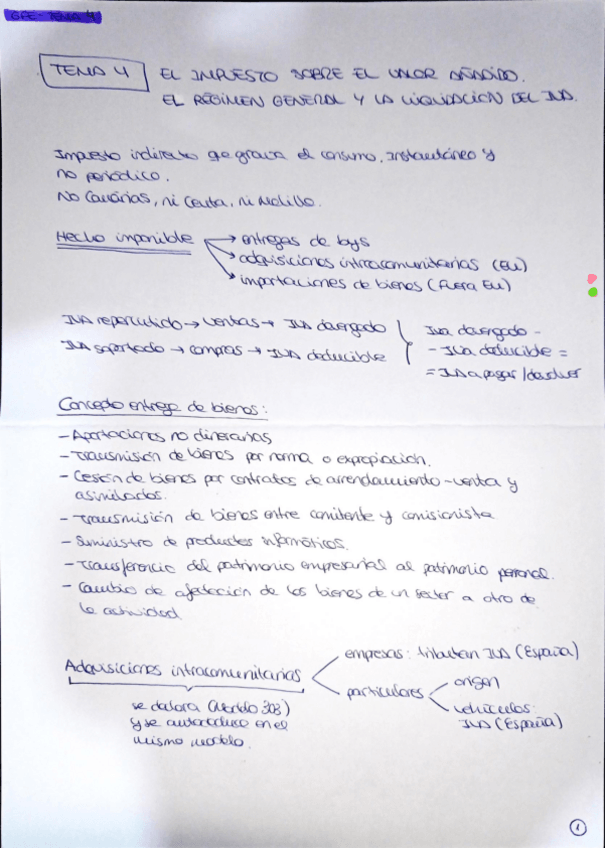 GFE - TEMA 4
TEMA 4 EL IMPUESTO SOBRE EL VALOR AÑADIDO.
EL RÉGIMEN GENERAL Y LA LIQUIDACIÓN DEL IVA.
Impuesto indirecto qe grava el consumo. Instantáneo y
no periódico.
No Canarias, ni Ceuta, ni Melilla.
Hecho imponible → entregas de bys
→ adquisiciones intracomunitarias (EU)
→ importaciones de bienes (Fuera EU)
IVA repercutido → ventas → IVA devengado
IVA soportado → compras → IVA deducible
Iva devengado -
- Iva deducible =
= IVA a pagar / devolver
Concepto entrega de bienes:
- Aportaciones no dinerarias
- Transmisión de bienes por norma o expropiación.
- Cesión de bienes por contratos de arrendamiento-venta y
asimilados.
- Transmisión de bienes entre comitente y comisionista
- Suministro de productos informáticos.
- Transferencia del patrimonio empresarial al patrimonio personal.
- Cambio de afectación de los bienes de un sector a otro de
la actividad
Adquisiciones intracomunitarias
empresas: tributan IVA (España)
particulares
origen
vehículos:
IVA (España)
se declara (Modelo 303)
y se autodeduce en el
mismo modelo.
1